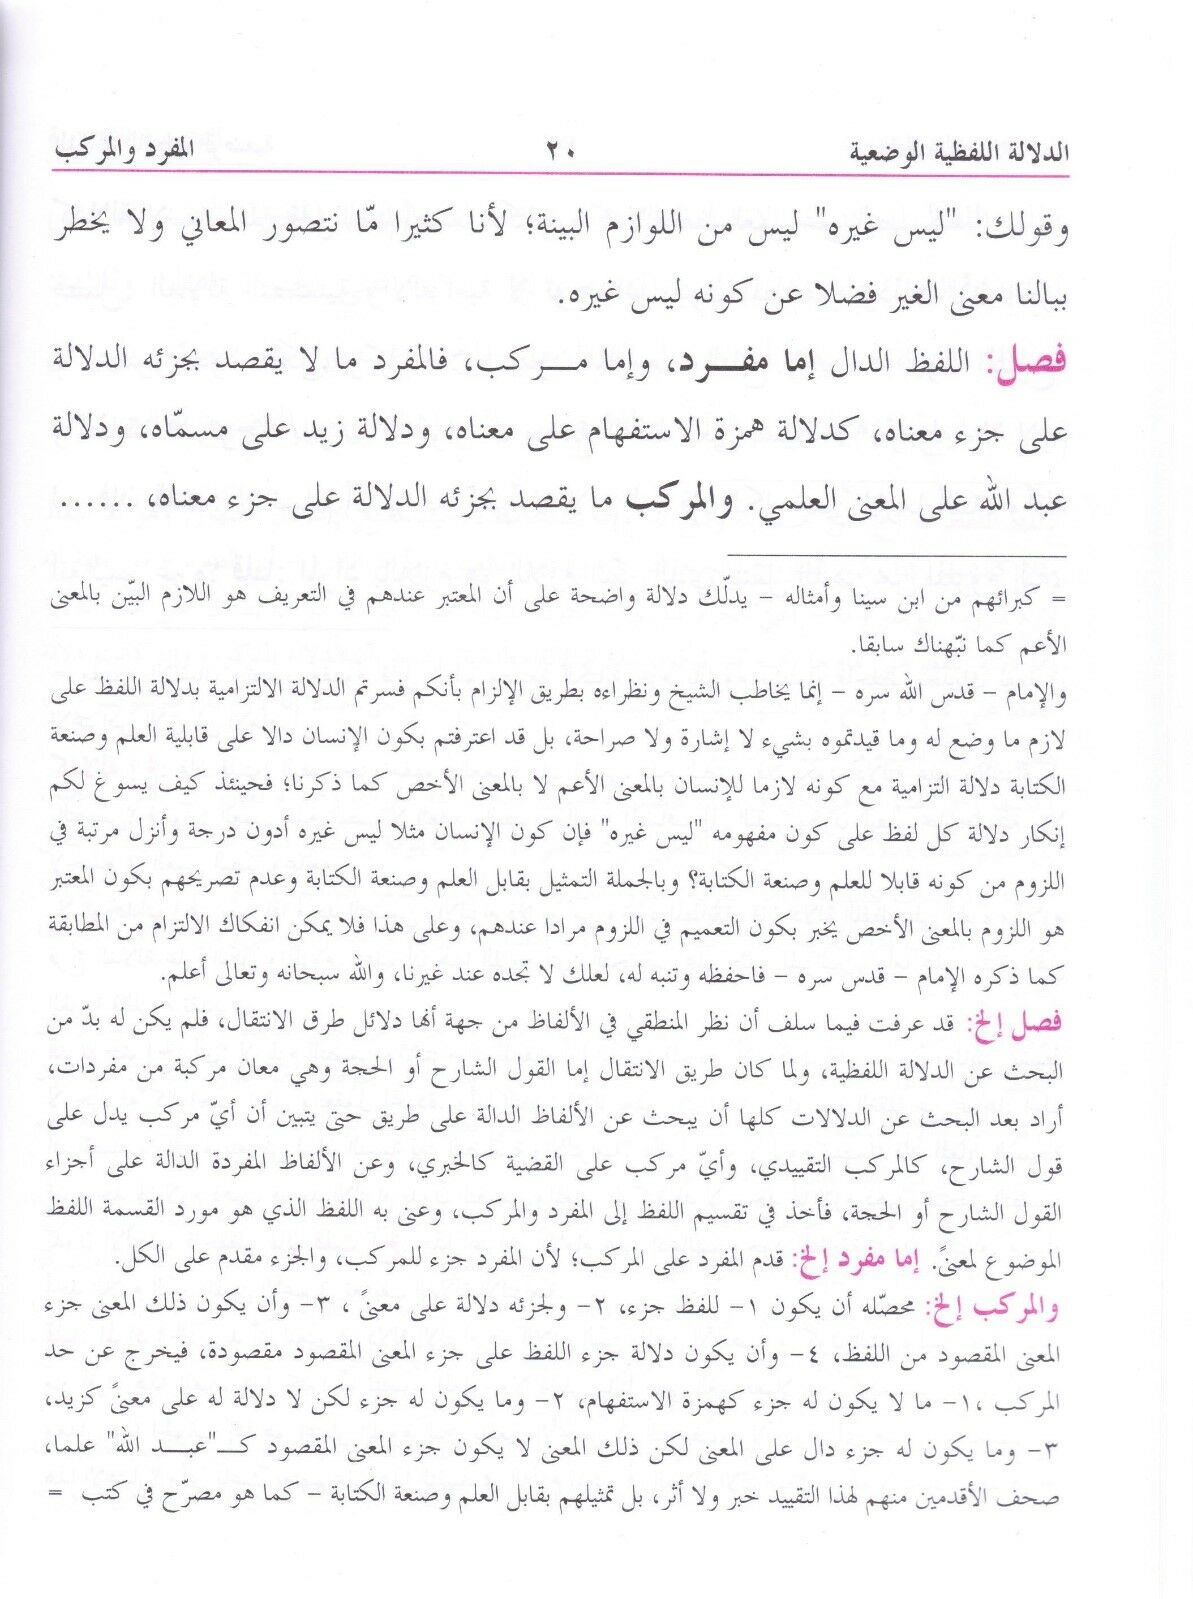 الدلالة اللفظية الوضعية ٢٠ المفرد والمركب
وقولك: "ليس غيره" ليس من اللوازم البينة؛ لأنا كثيرا مّا نتصور المعاني ولا يخطر
ببالنا معنى الغير فضلا عن كونه ليس غيره.
فصل: اللفظ الدال إما مفـــرد، وإما مـــركب، فالمفرد ما لا يقصد بجزئه الدلالة
على جزء معناه، كدلالة همزة الاستفهام على معناه، ودلالة زيد على مسمّاه، ودلالة
عبد الله على المعنى العلمي. والمركب ما يقصد بجزئه الدلالة على جزء معناه، ......
= كبرائهم من ابن سينا وأمثاله – يدلّك دلالة واضحة على أن المعتبر عندهم في التعريف هو اللازم البيّن بالمعنى
الأعم كما نبّهناك سابقا.
والإمام – قدس الله سره – إنما يخاطب الشيخ ونظراءه بطريق الإلزام بأنكم فسرتم الدلالة الالتزامية بدلالة اللفظ على
لازم ما وضع له وما قيدتموه بشيء لا إشارة ولا صراحة، بل قد اعترفتم بكون الإنسان دالا على قابلية العلم وصنعة
الكتابة دلالة التزامية مع كونه لازما للإنسان بالمعنى الأعم لا بالمعنى الأخص كما ذكرنا؛ فحينئذ كيف يسوغ لكم
إنكار دلالة كل لفظ على كون مفهومه "ليس غيره" فإن كون الإنسان مثلا ليس غيره أدون درجة وأنزل مرتبة في
اللزوم من كونه قابلا للعلم وصنعة الكتابة؟ وبالجملة التمثيل بقابل العلم وصنعة الكتابة وعدم تصريحهم بكون المعتبر
هو اللزوم بالمعنى الأخص يخبر بكون التعميم في اللزوم مرادا عندهم، وعلى هذا فلا يمكن انفكاك الالتزام من المطابقة
كما ذكره الإمام – قدس سره – فاحفظه وتنبه له، لعلك لا تجده عند غيرنا، والله سبحانه وتعالى أعلم.
فصل إلخ: قد عرفت فيما سلف أن نظر المنطقي في الألفاظ من جهة أنها دلائل طرق الانتقال، فلم يكن له بدّ من
البحث عن الدلالة اللفظية، ولما كان طريق الانتقال إما القول الشارح أو الحجة وهي معان مركبة من مفردات،
أراد بعد البحث عن الدلالات كلها أن يبحث عن الألفاظ الدالة على طريق حتى يتبين أن أيّ مركب يدل على
قول الشارح، كالمركب التقييدي، وأيّ مركب على القضية كالخبري، وعن الألفاظ المفردة الدالة على أجزاء
القول الشارح أو الحجة، فأخذ في تقسيم اللفظ إلى المفرد والمركب، وعنى به اللفظ الذي هو مورد القسمة اللفظ
الموضوع لمعنىً. إما مفرد إلخ: قدم المفرد على المركب؛ لأن المفرد جزء للمركب، والجزء مقدم على الكل.
والمركب إلخ: محصّله أن يكون ١- للفظ جزء، ٢- ولجزئه دلالة على معنىً، ٣- وأن يكون ذلك المعنى جزء
المعنى المقصود من اللفظ، ٤- وأن يكون دلالة جزء اللفظ على جزء المعنى المقصود مقصودة، فيخرج عن حد
المركب ،١- ما لا يكون له جزء كهمزة الاستفهام، ٢- وما يكون له جزء لكن لا دلالة له على معنىً كزيد،
٣- وما يكون له جزء دال على المعنى لكن ذلك المعنى لا يكون جزء المعنى المقصود كـ"عبـد الله" علما،
صحف الأقدمين منهم لهذا التقييد خبر ولا أثر، بل تمثيلهم بقابل العلم وصنعة الكتابة – كما هو مصرّح في كتب =